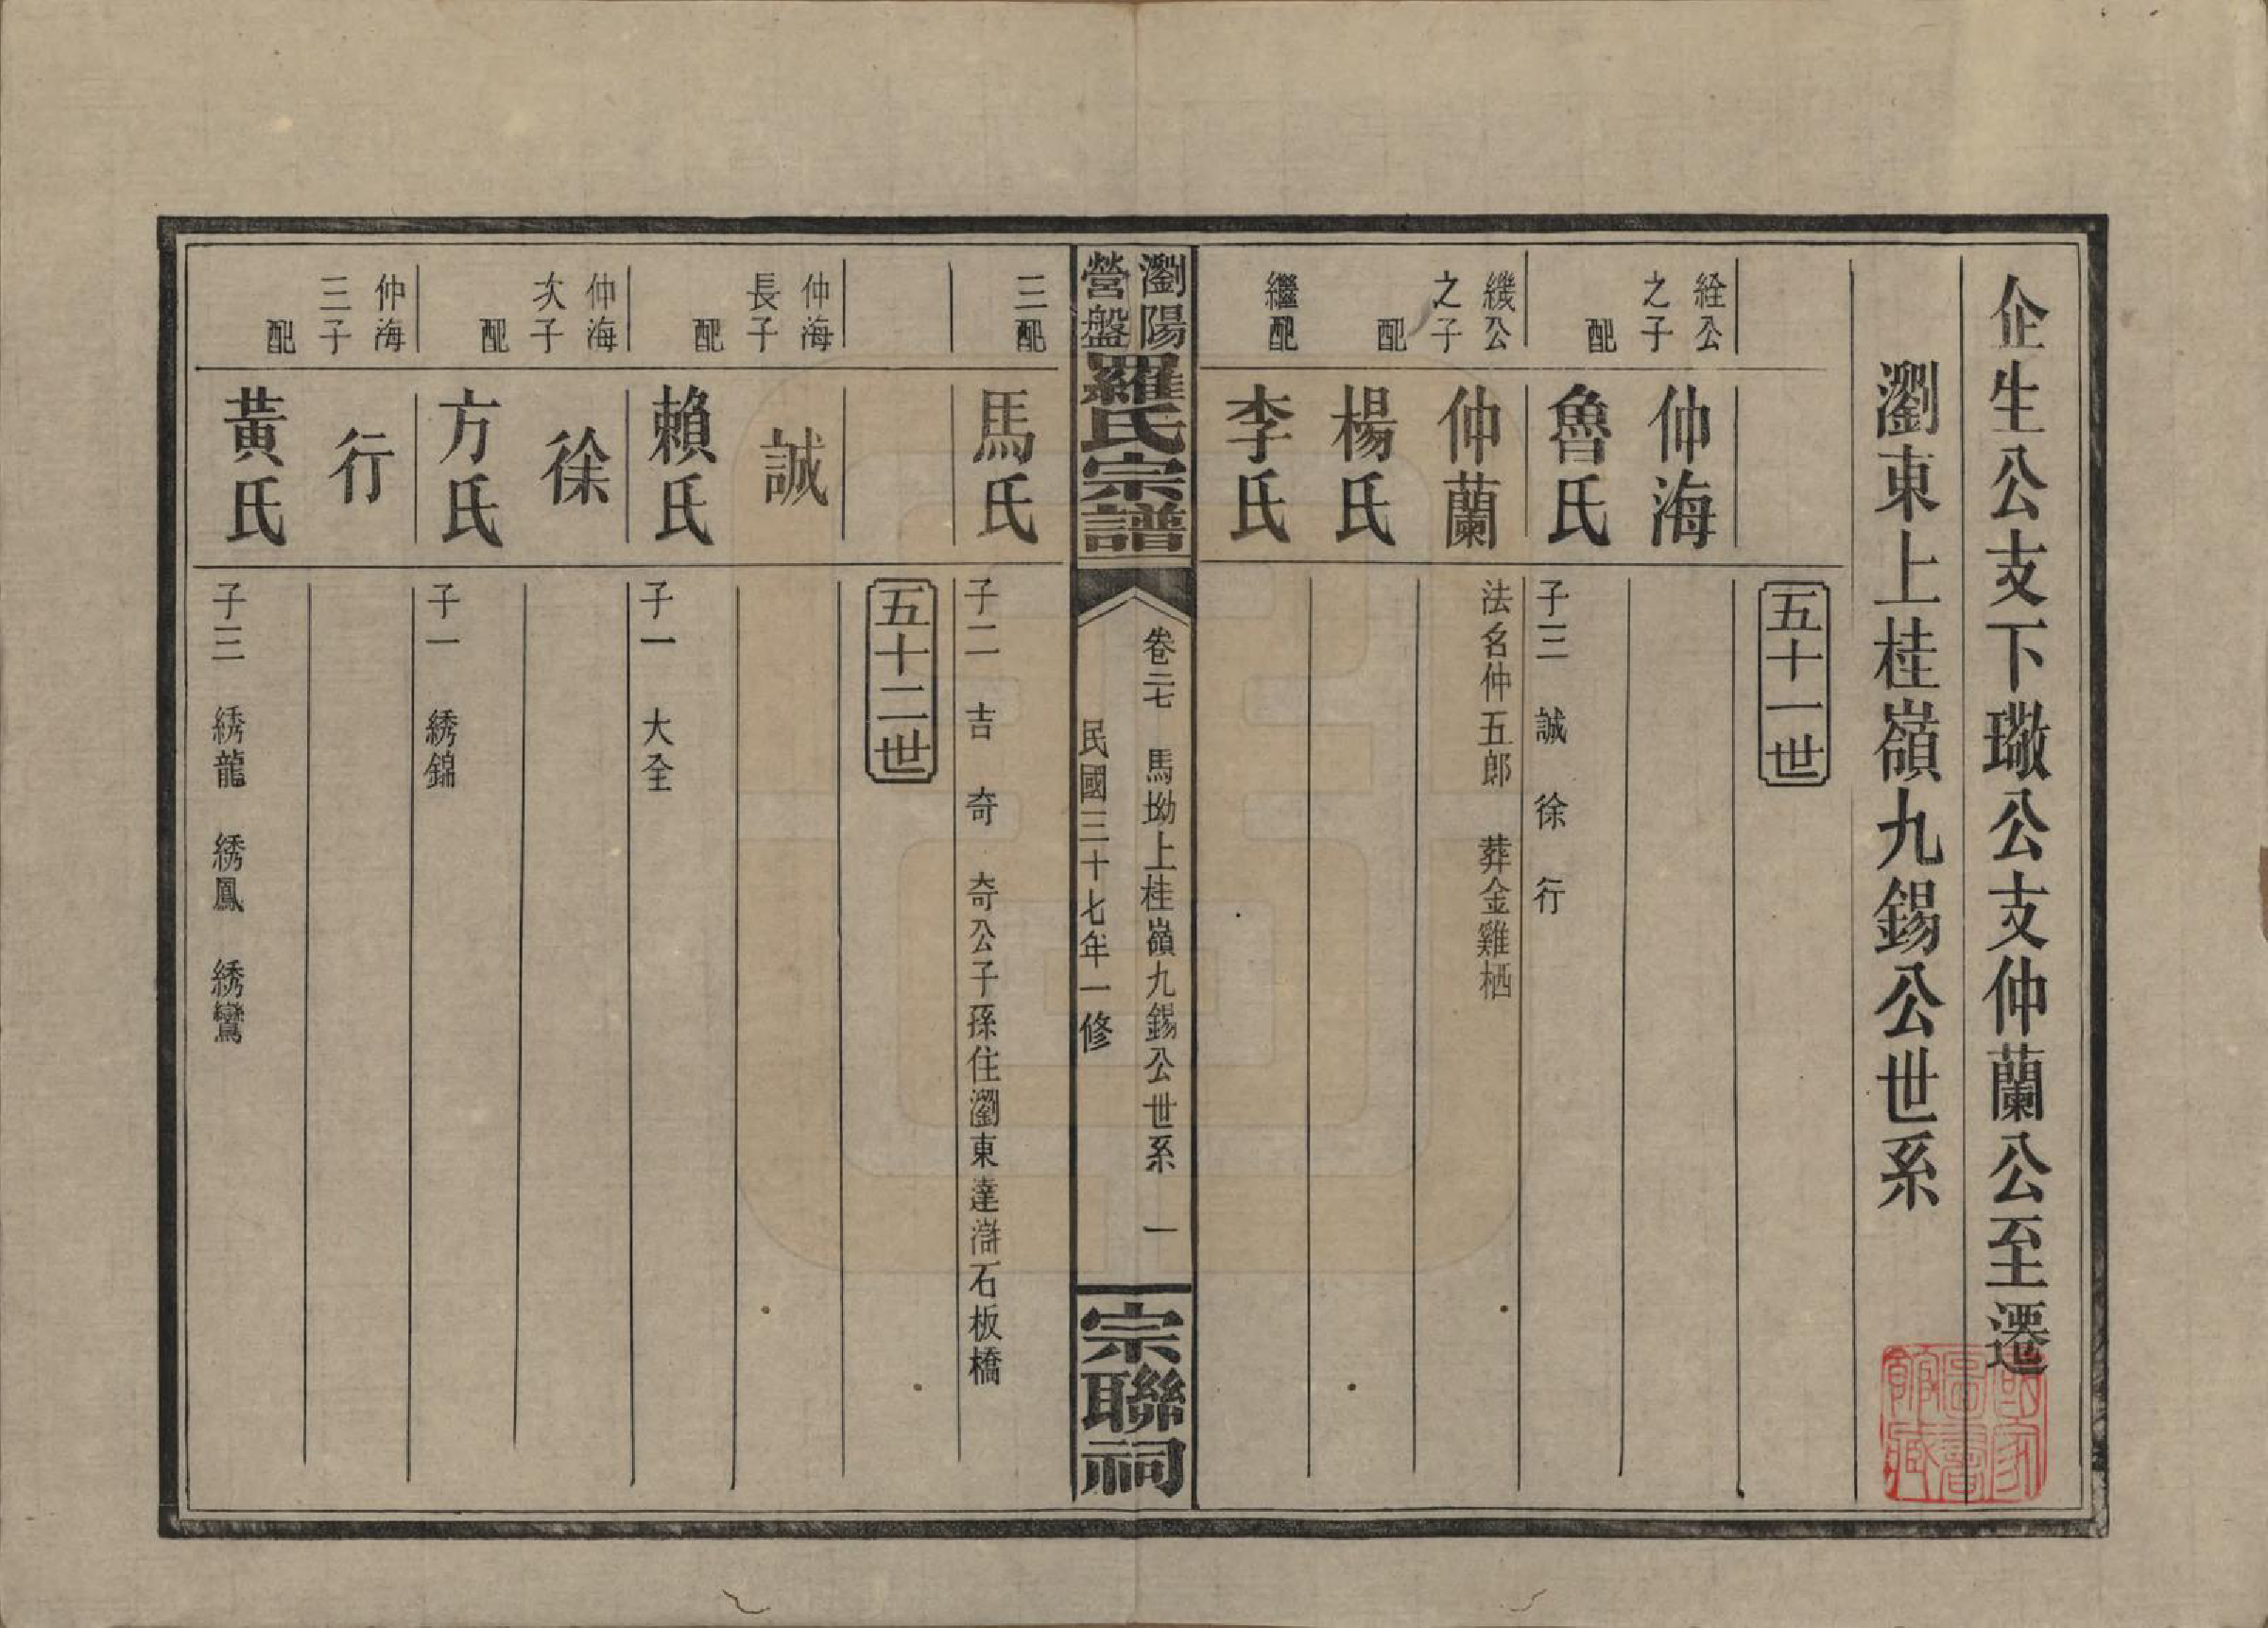 企生公支下璥公支仲蘭公至遷
瀏東上桂嶺九錫公世系
五十一世
絟公之子
仲海
配
魯氏
子三 誠 徐 行
繈公之子
仲蘭
法名仲五郎 葬金雞栖
配
楊氏
繼配
李氏
瀏陽
營盤
羅氏宗譜
卷二七 馬坳上桂嶺九錫公世系 一
民國三十七年一修
宗聯祠
三配
馬氏
子二 吉 奇 奇公子孫住瀏東達滸石板橋
五十二世
仲海長子
誠
配
賴氏
子一 大全
仲海次子
徐
配
方氏
子一 綉錦
仲海三子
行
配
黃氏
子三 綉龍 綉鳳 綉鸞
國家圖書館藏